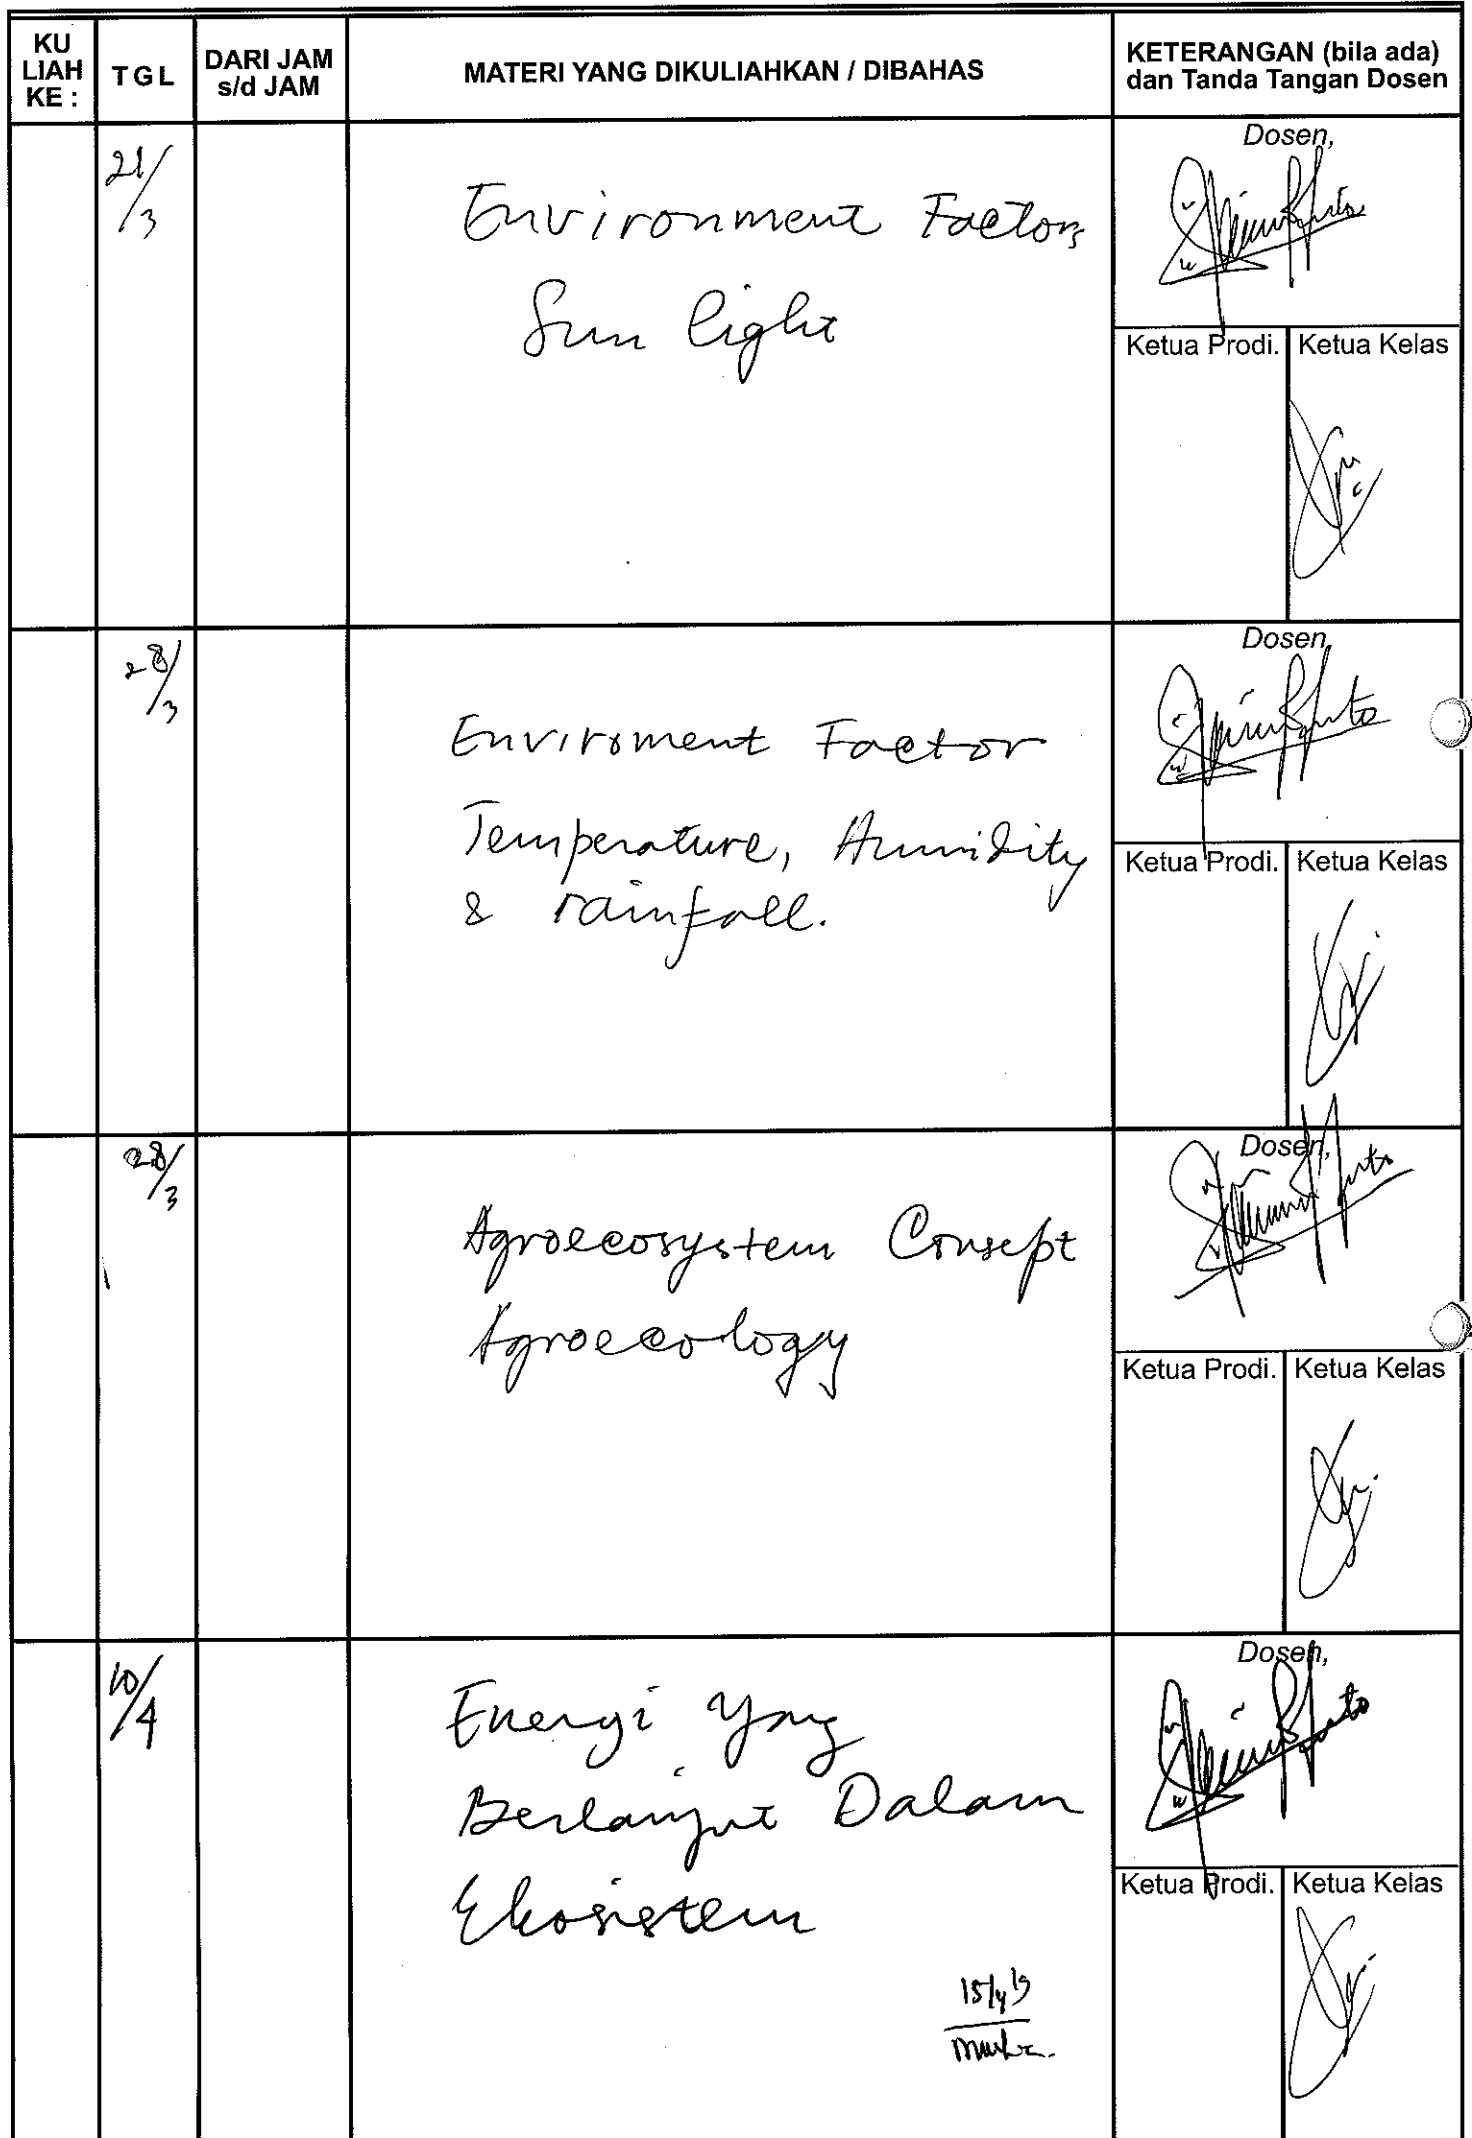 KU LIAH KE :
TGL
DARI JAM s/d JAM
MATERI YANG DIKULIAHKAN / DIBAHAS
KETERANGAN (bila ada) dan Tanda Tangan Dosen
21/3
Environment Factors
Sun light
Dosen,
Ketua Prodi.
Ketua Kelas
28/3
Enviroment Factor
Temperature, Humidity
& rainfall.
Dosen,
Ketua Prodi.
Ketua Kelas
28/3
Agroecosystem Consept
Agroecology
Dosen,
Ketua Prodi.
Ketua Kelas
10/4
Energi Yang
Berlanjut Dalam
Ekosistem
15/4 19
Dosen,
Ketua Prodi.
Ketua Kelas